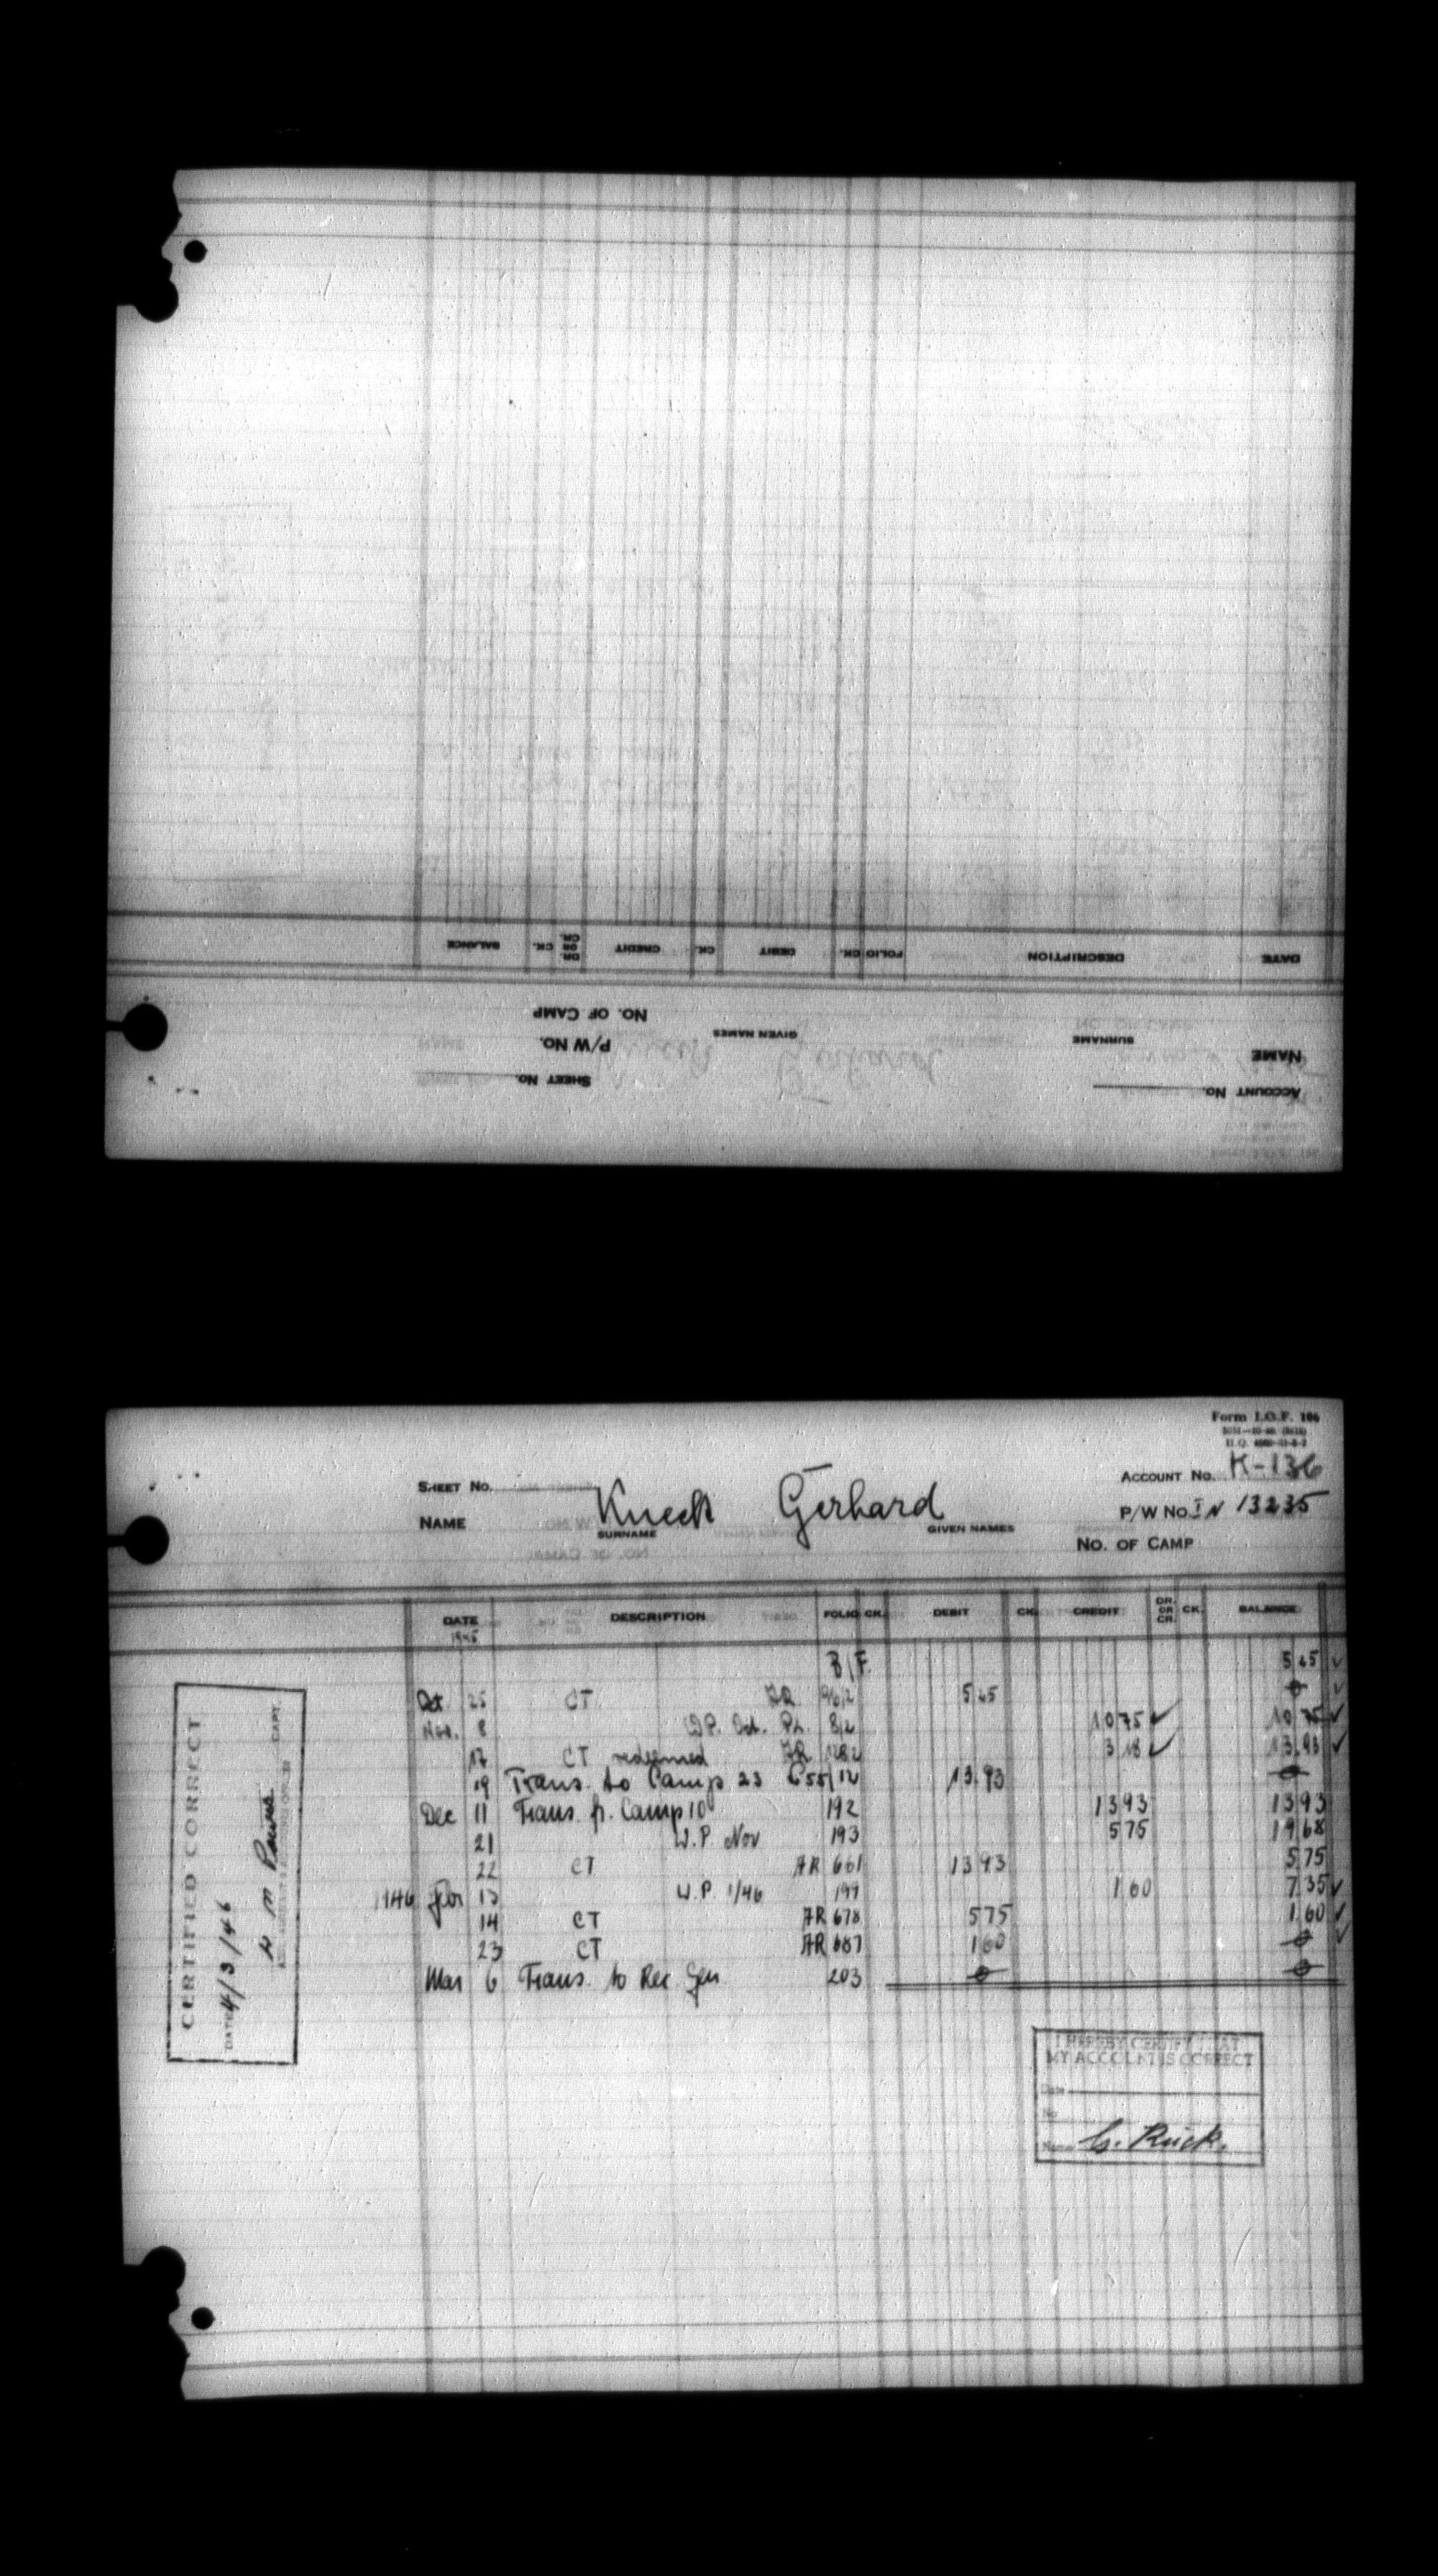 BALANCE CK. DR. OR CR. CREDIT CK. DEBIT CK. FOLIO DESCRIPTION DATE
NO. OF CAMP
P/W NO. GIVEN NAMES SURNAME NAME
SHEET NO. ACCOUNT NO.
Form I.O.F. 106
H.Q.
SHEET NO. ACCOUNT NO. K-136
NAME Gerhard P/W NO. 13235
SURNAME GIVEN NAMES
NO. OF CAMP
DATE DESCRIPTION FOLIO CK. DEBIT CK. CREDIT DR. OR CR. CK. BALANCE
1945
B/F. 5 45 ✓
Oct. 25 CT 5 45 ✓
Nov. 8 W.P. Oct. 8/2 10 75 ✓ 10 75 ✓
17 CT redeemed 3 18 ✓ 13.93 ✓
19 Trans. to Camp 23 13.93
Dec 11 Trans. fr. Camp 10 192 13 93 13 93
21 W.P. Nov 193 5 75 19 68
22 CT AR 661 13 93 5 75
1946 13 W.P. 1/46 199 1 60 7 35 ✓
14 CT AR 678 5 75 1 60 ✓
23 CT AR 687 1 60 ✓
Mar 6 Trans. to Rec Gen 203
CERTIFIED CORRECT
DATE 4/3/46
CAPT.
I HEREBY CERTIFY THAT
MY ACCOUNT IS CORRECT
Date
No
Name